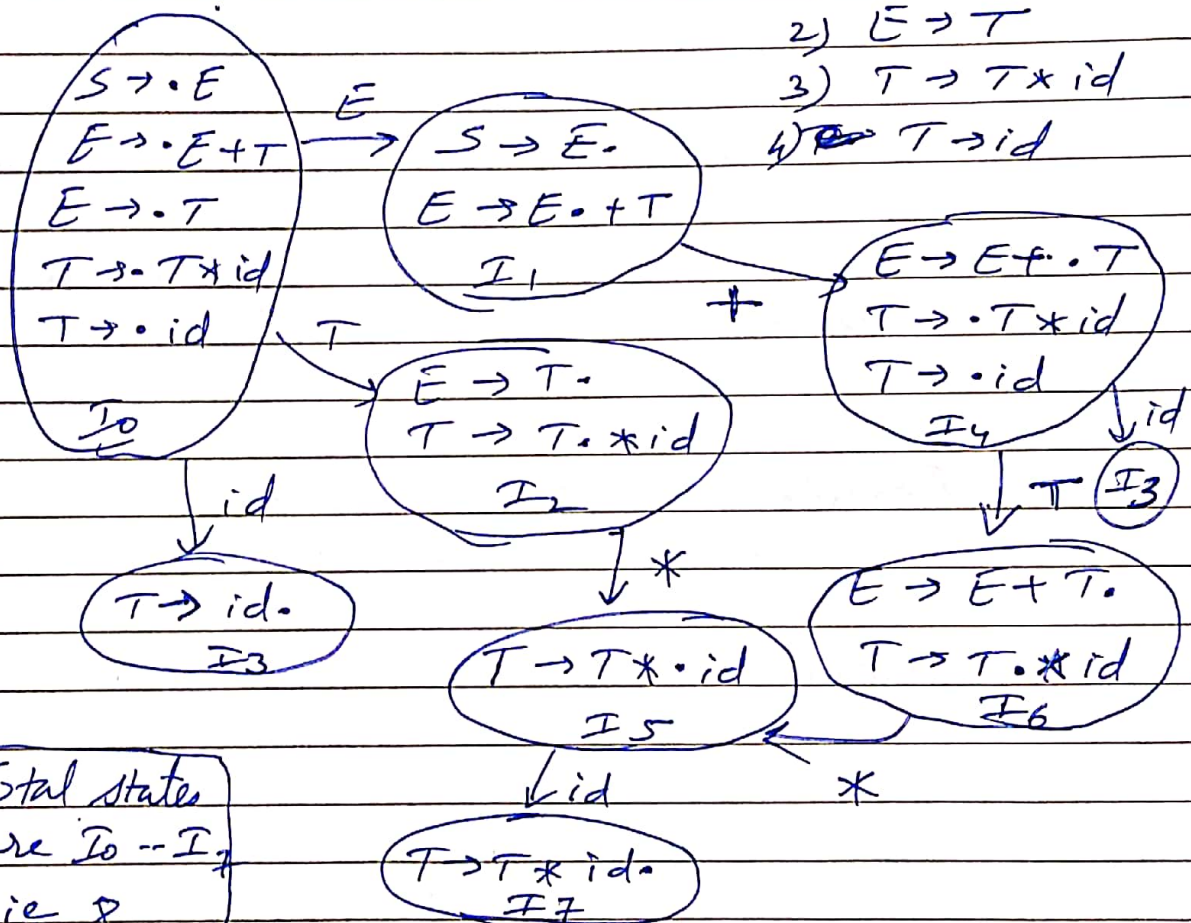 2) E → T
3) T → T * id
4) T → id
S → • E
E → • E + T
E → • T
T → • T * id
T → • id
I0
E
S → E •
E → E • + T
I1
+
E → E + • T
T → • T * id
T → • id
I4
T
E → T •
T → T • * id
I2
id
T → id •
I3
*
T
id
I3
E → E + T •
T → T • * id
I6
T → T * • id
I5
*
id
T → T * id •
I7
otal states
re I0 -- I7
ie 8